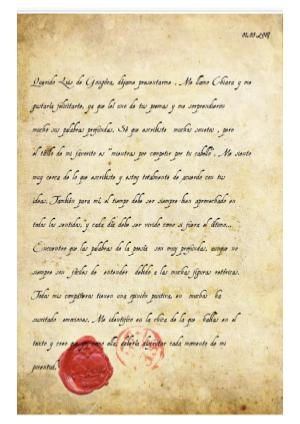 Querido Luis de Góngora, déjame presentarme. Me llamo Chiara y me
gustaría felicitarte, ya que leí uno de tus poemas y me sorprendieron
mucho sus palabras profundas. Sé que escribiste muchos sonetos, pero
el título de mi favorito es "mientras por competir por tu cabello". Me siento
muy cerca de lo que escribiste y estoy totalmente de acuerdo con tus
ideas. También para mí, el tiempo debe ser siempre bien aprovechado en
todos los sentidos, y cada día debe ser vivido como si fuera el último...
Encuentro que las palabras de la poesía son muy profundas, aunque no
siempre son fáciles de entender debido a las muchas figuras retóricas.
Todos mis compañeros tienen una opinión positiva, en muchos ha
suscitado emociones. Me identifico en la chica de la que hablas en el
texto y creo que yo como ella, debería disfrutar cada momento de mi
juventud.